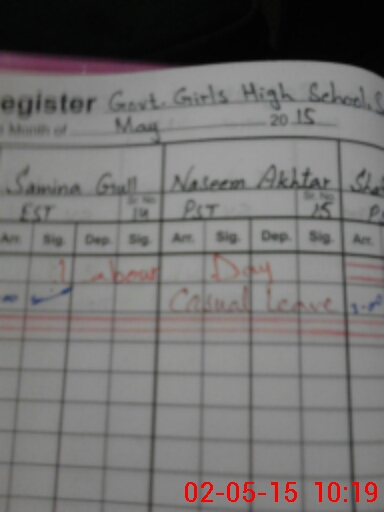 egister Govt. Girls High School, S
Month of May 2015
Samina Gull Naseem Akhtar Sha
EST Sr. No. 14 PST Sr. No. 15 P
Arr. Sig. Dep. Sig. Arr. Sig. Dep. Sig. Arr.
Labour Day
Casual leave
02-05-15 10:19